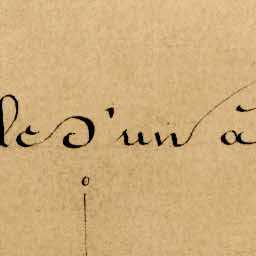 le d'un à